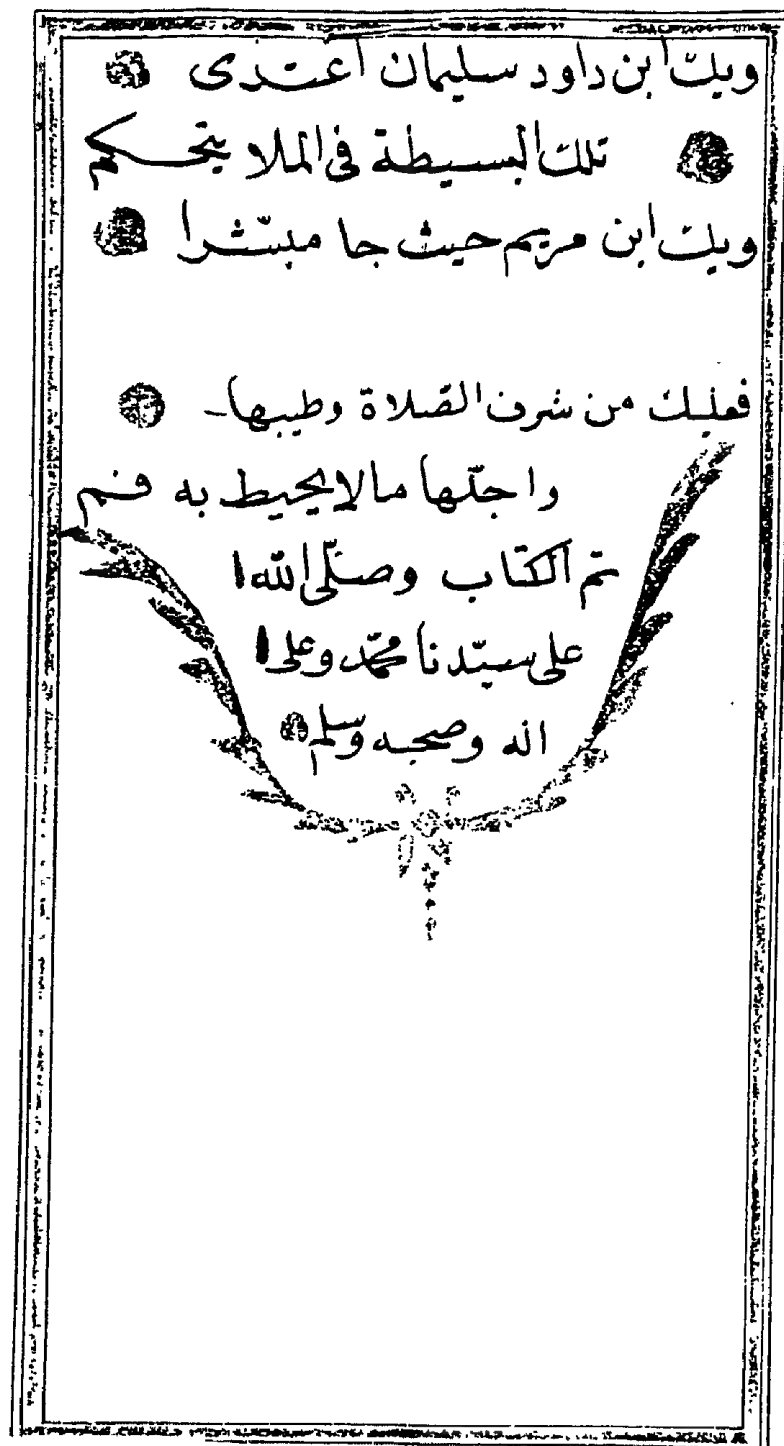 وبك ابن داود سليمان اعتدى
تلك البسيطة فى الملا يتحكم
وبك ابن مريم حيث جا مبشرا
فعليك من شرف الصّلاة وطيبها
واجلّها مالا يحيط به فم
تم الكتاب وصلّى الله
على سيّدنا محمّد وعلى
اله وصحبه وسلم